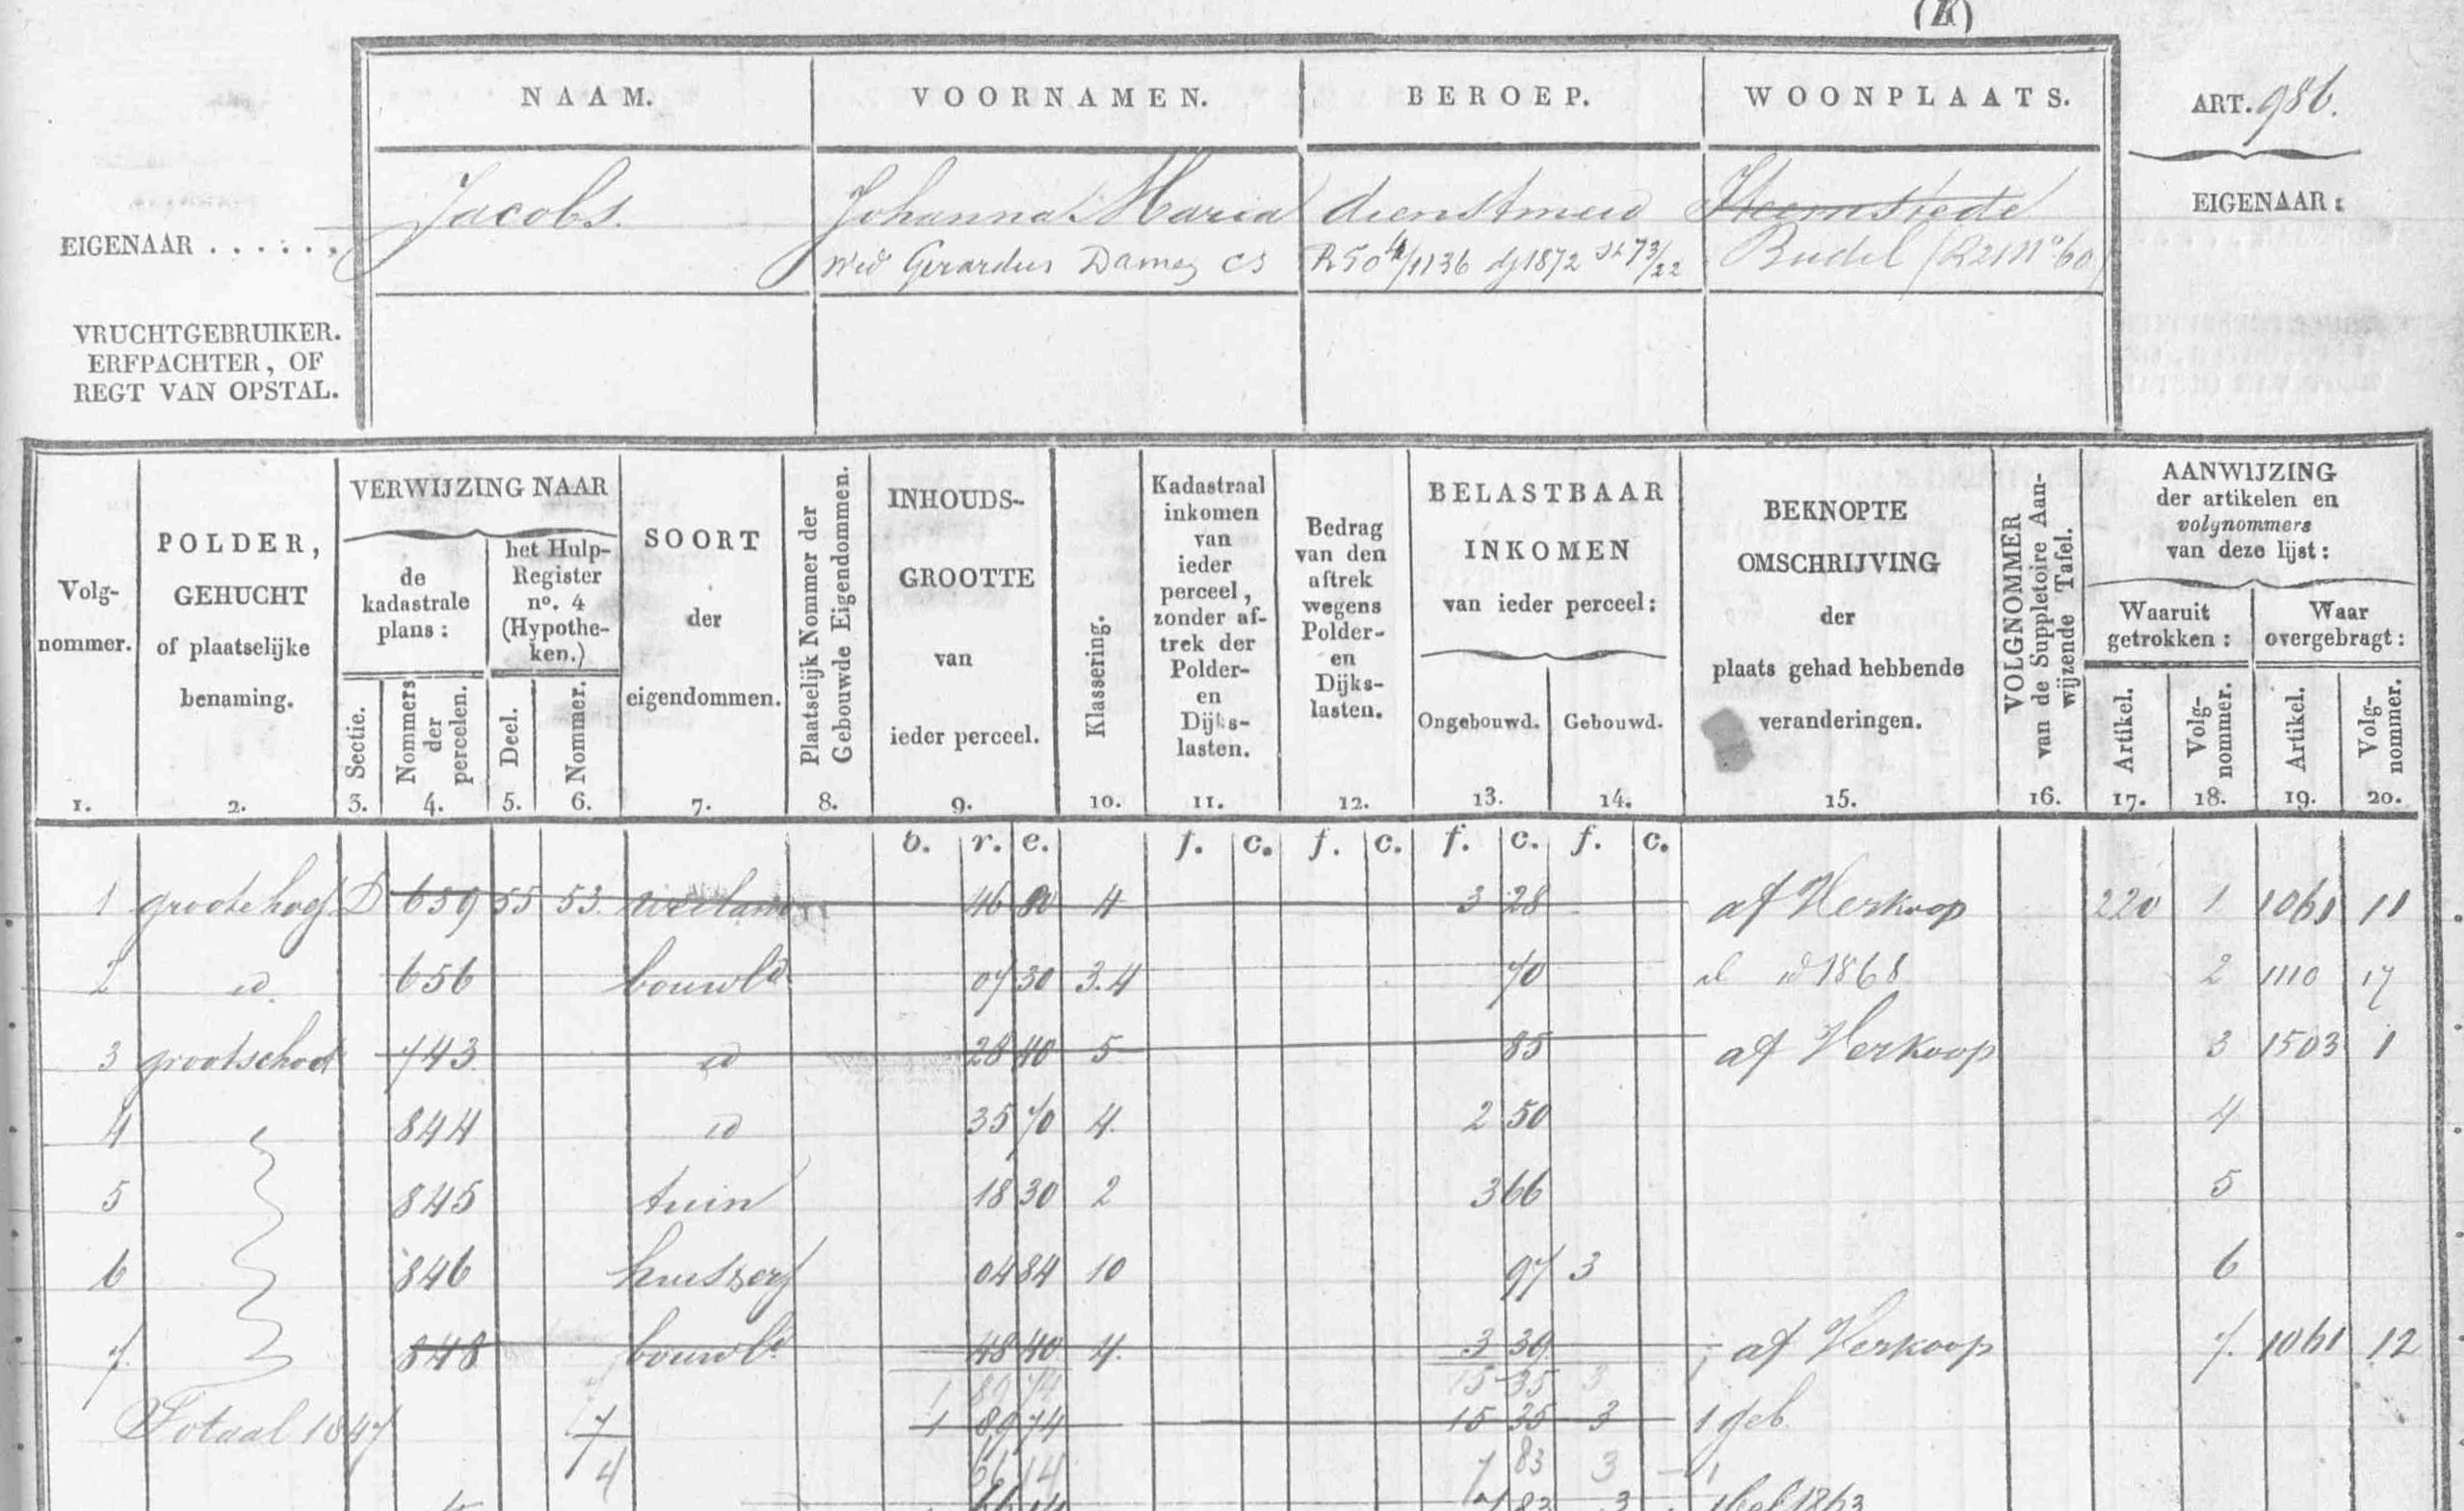 (K)
NAAM. VOORNAMEN. BEROEP. WOONPLAATS. ART. 986.
EIGENAAR . . . . . . Jacobs. Johanna Maria dienstmeid Heemstede EIGENAAR:
Wed Gerardus Dames cs R504/1136 dj 1872 St 73/22 Budel (R21 No 60)
VRUCHTGEBRUIKER.
ERFPACHTER, OF
REGT VAN OPSTAL.
Volg-
nommer.
1.
POLDER,
GEHUCHT
of plaatselijke
benaming.
2.
VERWIJZING NAAR
de
kadastrale
plans:
Sectie.
3.
Nommers
der
percelen.
4.
het Hulp-
Register
no. 4
(Hypothe-
ken.)
Deel.
5.
Nommer.
6.
SOORT
der
eigendommen.
7.
Plaatselijk Nommer der
Gebouwde Eigendommen.
8.
INHOUDS-
GROOTTE
van
ieder perceel.
9.
Klassering.
10.
Kadastraal
inkomen
van
ieder
perceel,
zonder af-
trek der
Polder-
en
Dijks-
lasten.
11.
Bedrag
van den
aftrek
wegens
Polder-
en
Dijks-
lasten.
12.
BELASTBAAR
INKOMEN
van ieder perceel:
Ongebouwd.
13.
Gebouwd.
14.
BEKNOPTE
OMSCHRIJVING
der
plaats gehad hebbende
veranderingen.
15.
VOLGNOMMER
van de Suppletoire Aan-
wijzende Tafel.
16.
AANWIJZING
der artikelen en
volgnommers
van deze lijst:
Waaruit
getrokken:
Artikel.
17.
Volg-
nommer.
18.
Waar
overgebragt:
Artikel.
19.
Volg-
nommer.
20.
b. r. e. f. c. f. c. f. c. f. c.
1 groote hoef D 659 55 53. weiland 46 80 4 3 28 af Verkoop 220 1 1061 11
2 id. 656 bouwld 07 30 3.4 70 id 1868 2 1110 17
3 grootschoot 743 id 28 40 5 85 af Verkoop 3 1503 1
4 844 id 35 70 4. 2 50 4
5 845 tuin 18 30 2 3 66 5
6 846 huis & erf 04 84 10 97 3 6
7. 848 bouwld 48 40 4. 3 39 af Verkoop 7. 1061 12
1 89 74 15 35 3
Totaal 1847 7 1 89 74 15 35 3 1 geb.
4 66 14 7 83 3 1
66 14 7 83 3 1863